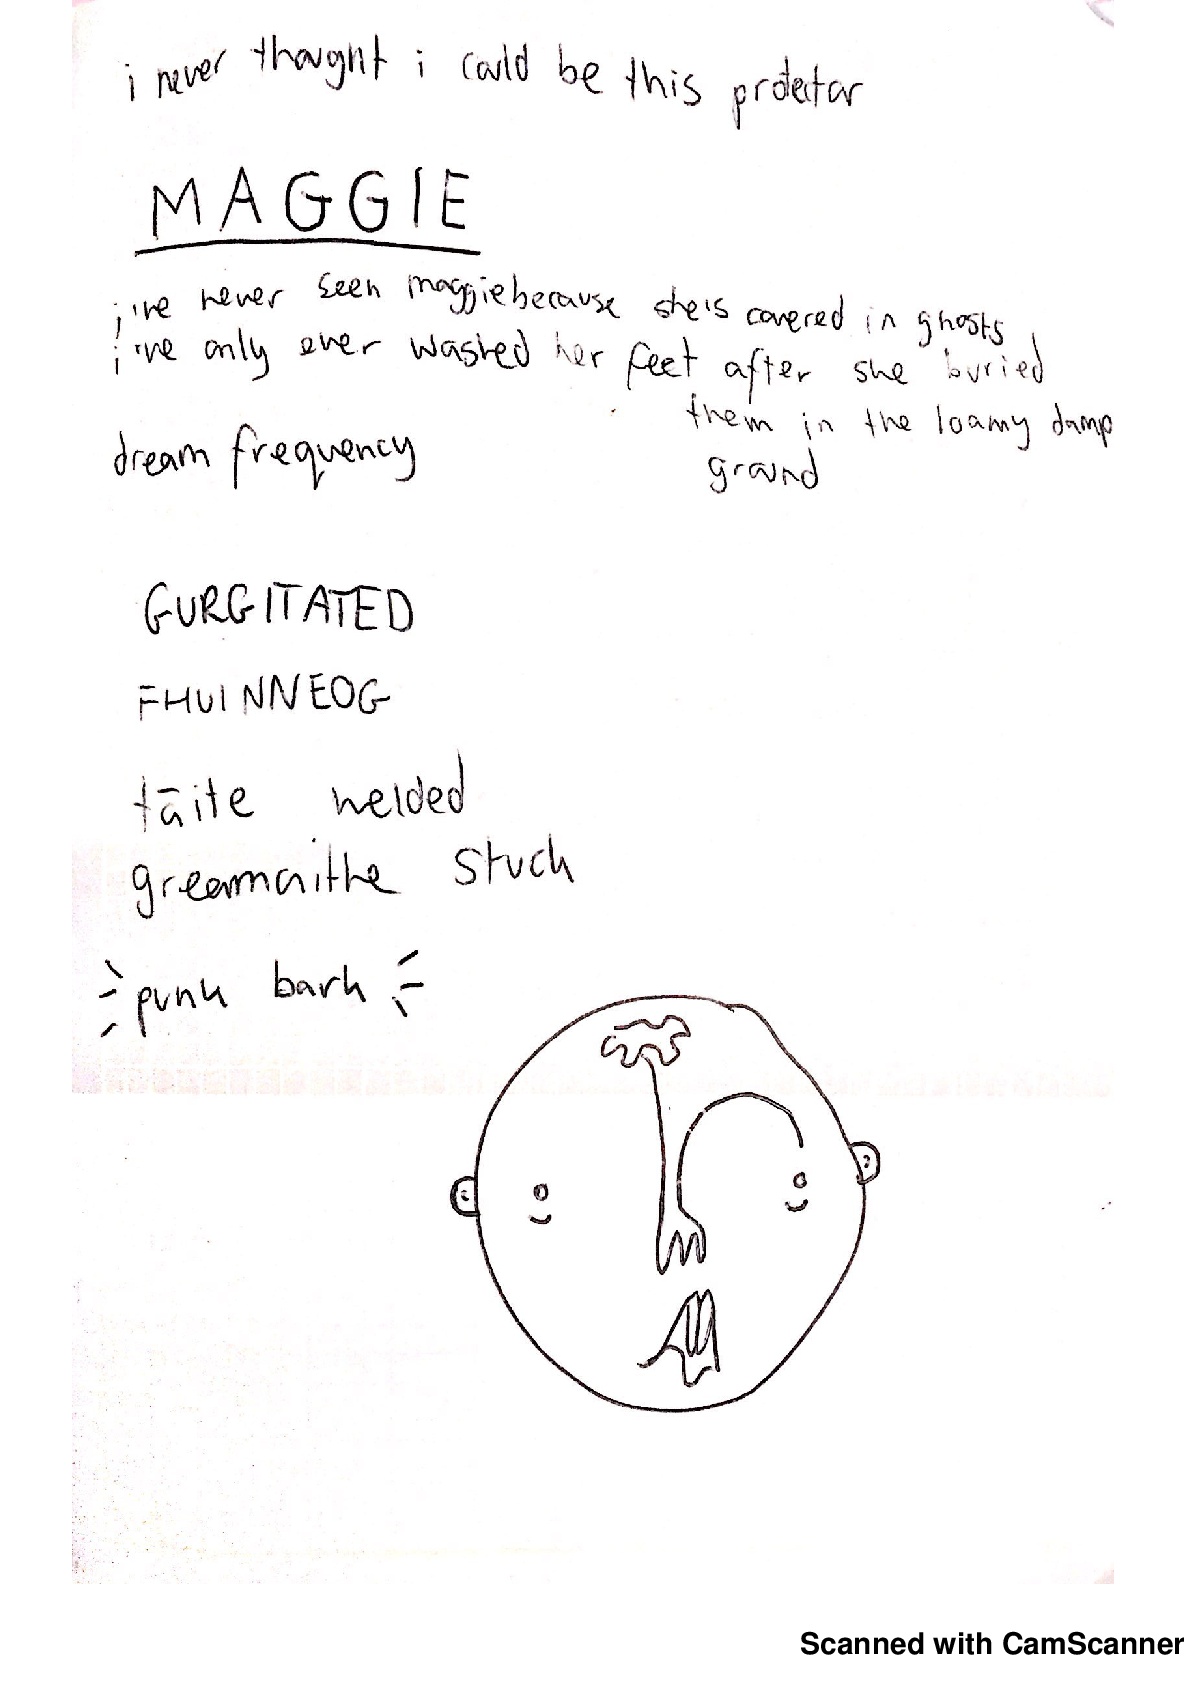 i never thought i could be this protector
MAGGIE
i've never seen maggie because she's covered in ghosts
i've only ever washed her feet after she buried
them in the loamy damp
ground
dream frequency
GURGITATED
FHUINNEOG
tāite welded
greamaithe stuck
punk bark
Scanned with CamScanner